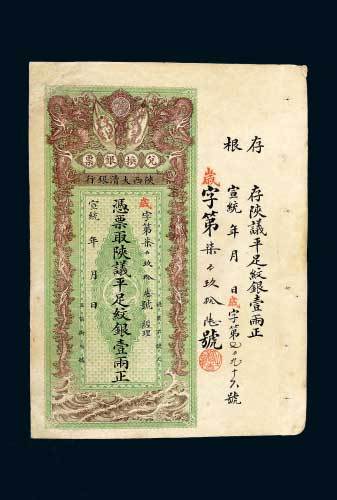 存根
存陝議平足紋銀壹兩正
宣統 年 月 日 歲字第 百九十六號
歲字第柒百玖拾陸號
兌換銀票
陝西大清銀行
歲字第柒百玖拾陸號 經理
憑票取陝議平足紋銀壹兩正
宣統 年 月 日